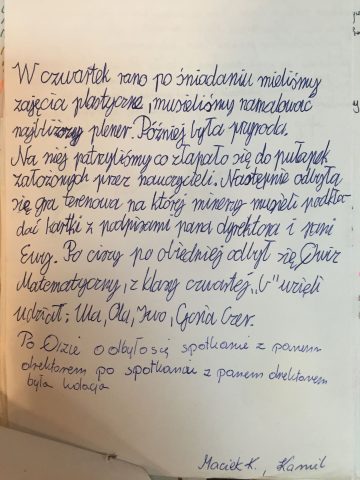 W czwartek rano po śniadaniu mieliśmy
zajęcia plastyczne, musieliśmy namalować
najbliższy plener. Później była przyroda.
Na niej patrzyliśmy co złapało się do pułapek
założonych przez nauczycieli. Następnie odbyła
się gra terenowa na której minerzy musieli podkła-
dać kartki z podpisami pana dyrektora i pani
Ewy. Po ciszy po obiedniej odbył się Quiz
Matematyczny, z klasy czwartej „b" wzięli
udział; Ula, Ola, Iwo, Gosia Czer.
Po Qizie odbyło się spotkanie z panem
drektorem po spotkaniu z panem drektorem
była kolacja
Maciek K., Kamil